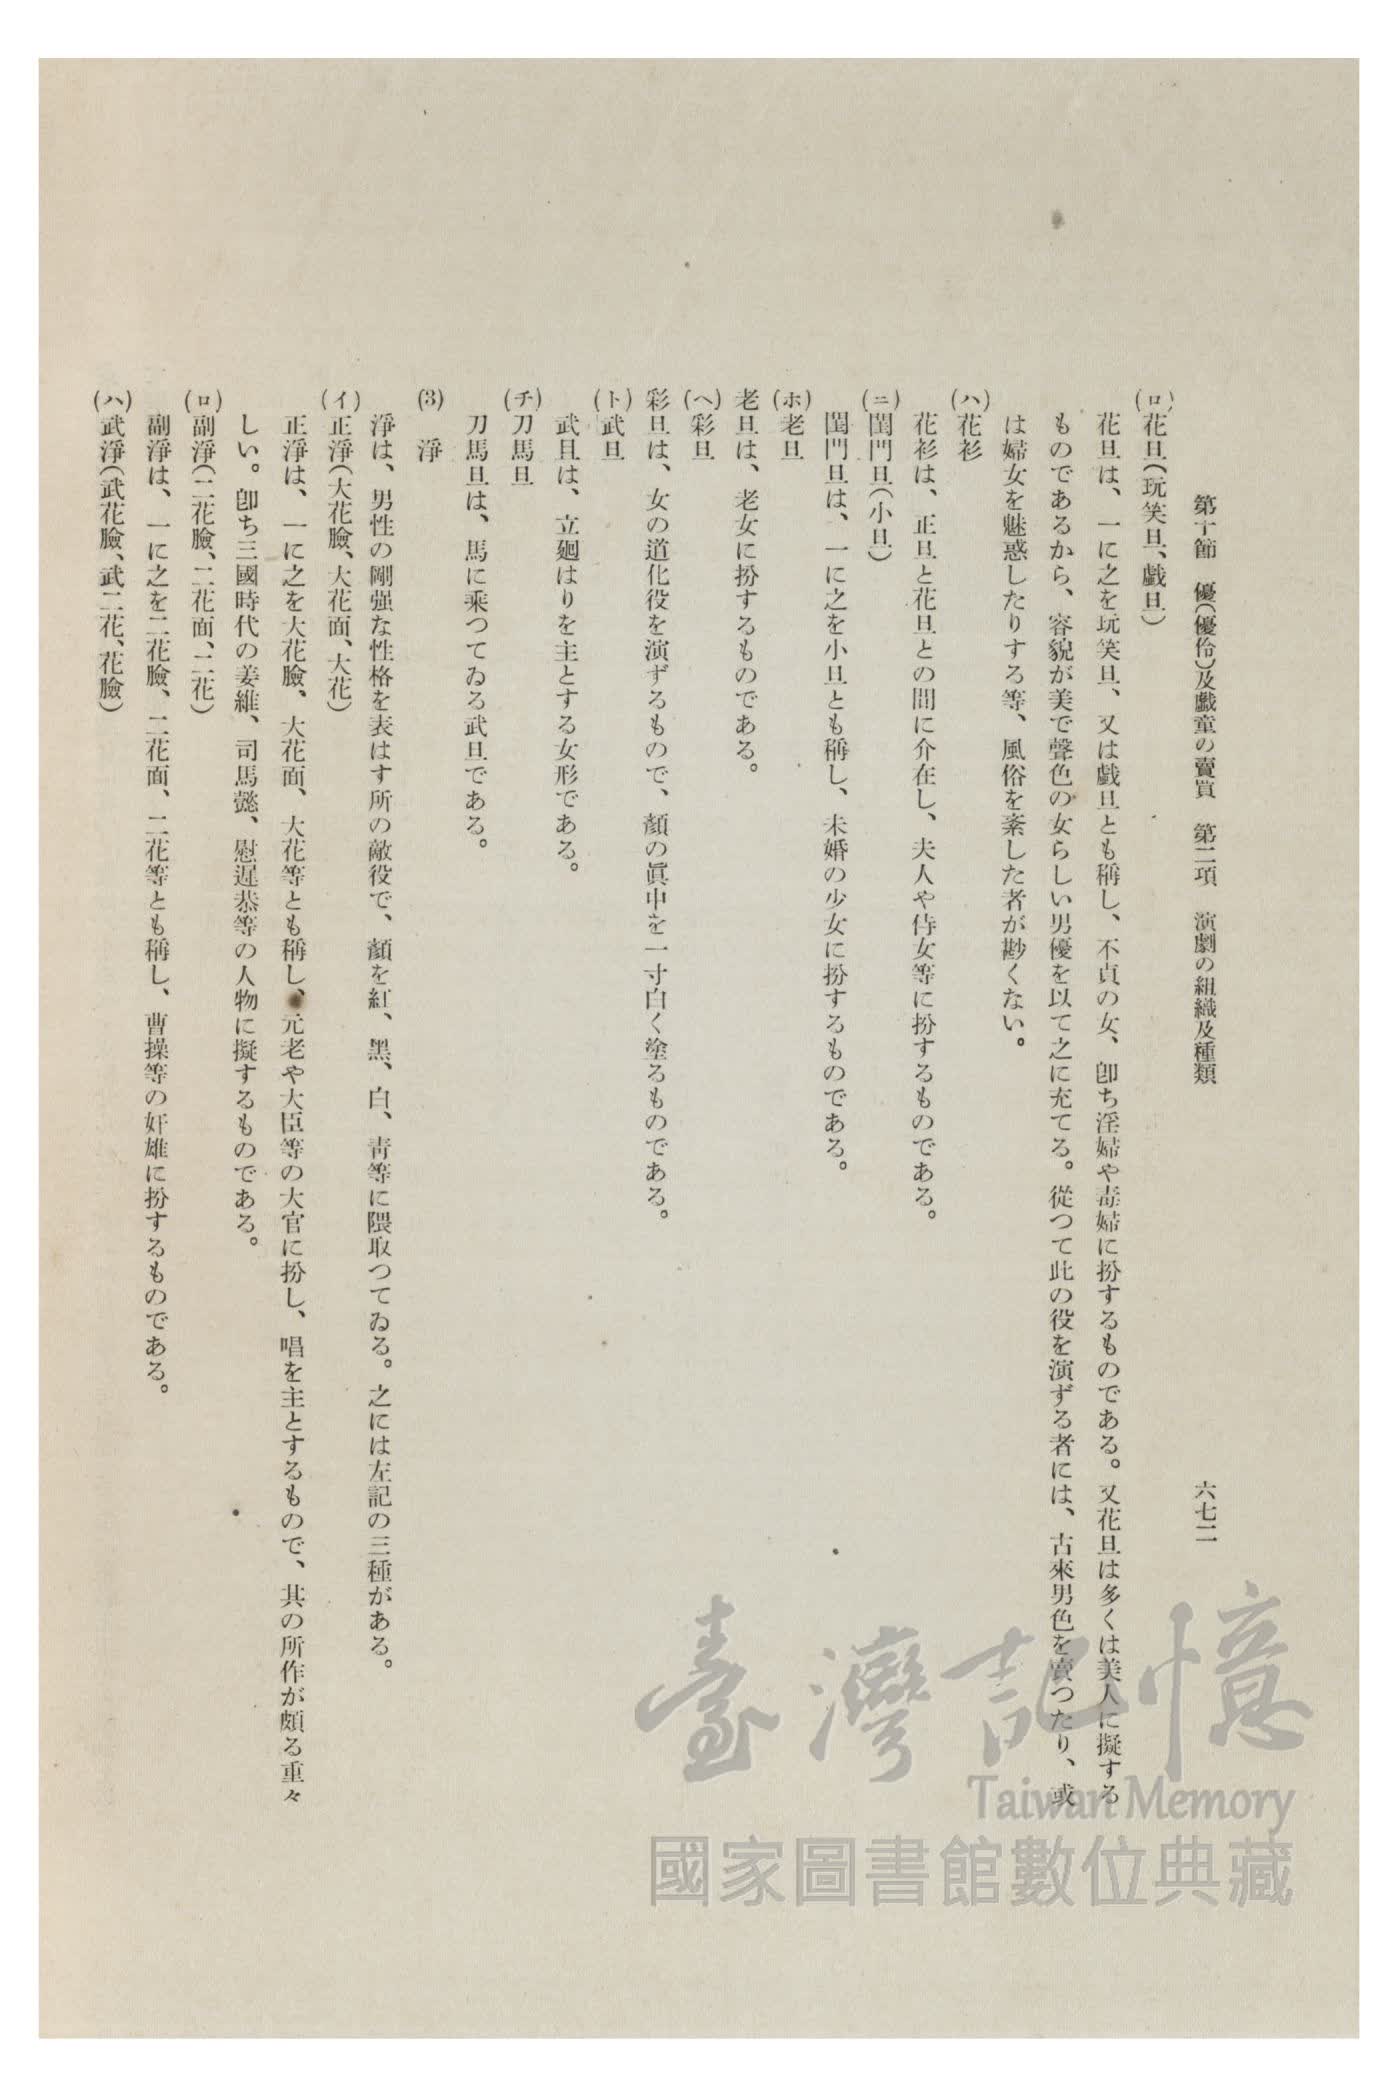 第十節　優(優伶)及戲童の賣買　第二項　演劇の組織及種類
六七二
(ロ)花旦(玩笑旦、戲旦)
花旦は、一に之を玩笑旦、又は戲旦とも稱し、不貞の女、卽ち淫婦や毒婦に扮するものである。又花旦は多くは美人に擬する
ものであるから、容貌が美で聲色の女らしい男優を以て之に充てる。從つて此の役を演ずる者には、古來男色を賣つたり、或
は婦女を魅惑したりする等、風俗を紊した者が尠くない。
(ハ)花衫
花衫は、正旦と花旦との間に介在し、夫人や侍女等に扮するものである。
(ニ)閨門旦(小旦)
閨門旦は、一に之を小旦とも稱し、未婚の少女に扮するものである。
(ホ)老旦
老旦は、老女に扮するものである。
(ヘ)彩旦
彩旦は、女の道化役を演ずるもので、顏の眞中を一寸白く塗るものである。
(ト)武旦
武旦は、立廻はりを主とする女形である。
(チ)刀馬旦
刀馬旦は、馬に乘つてゐる武旦である。
(3)　淨
淨は、男性の剛强な性格を表はす所の敵役で、顏を紅、黑、白、靑等に隈取つてゐる。之には左記の三種がある。
(イ)正淨(大花臉、大花面、大花)
正淨は、一に之を大花臉、大花面、大花等とも稱し、元老や大臣等の大官に扮し、唱を主とするもので、其の所作が頗る重々
しい。卽ち三國時代の姜維、司馬懿、慰遲恭等の人物に擬するものである。
(ロ)副淨(二花臉、二花面、二花)
副淨は、一に之を二花臉、二花面、二花等とも稱し、曹操等の奸雄に扮するものである。
(ハ)武淨(武花臉、武二花、花臉)
臺灣記憶
Taiwan Memory
國家圖書館數位典藏